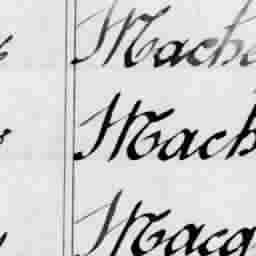 Mache
Mach
Macq